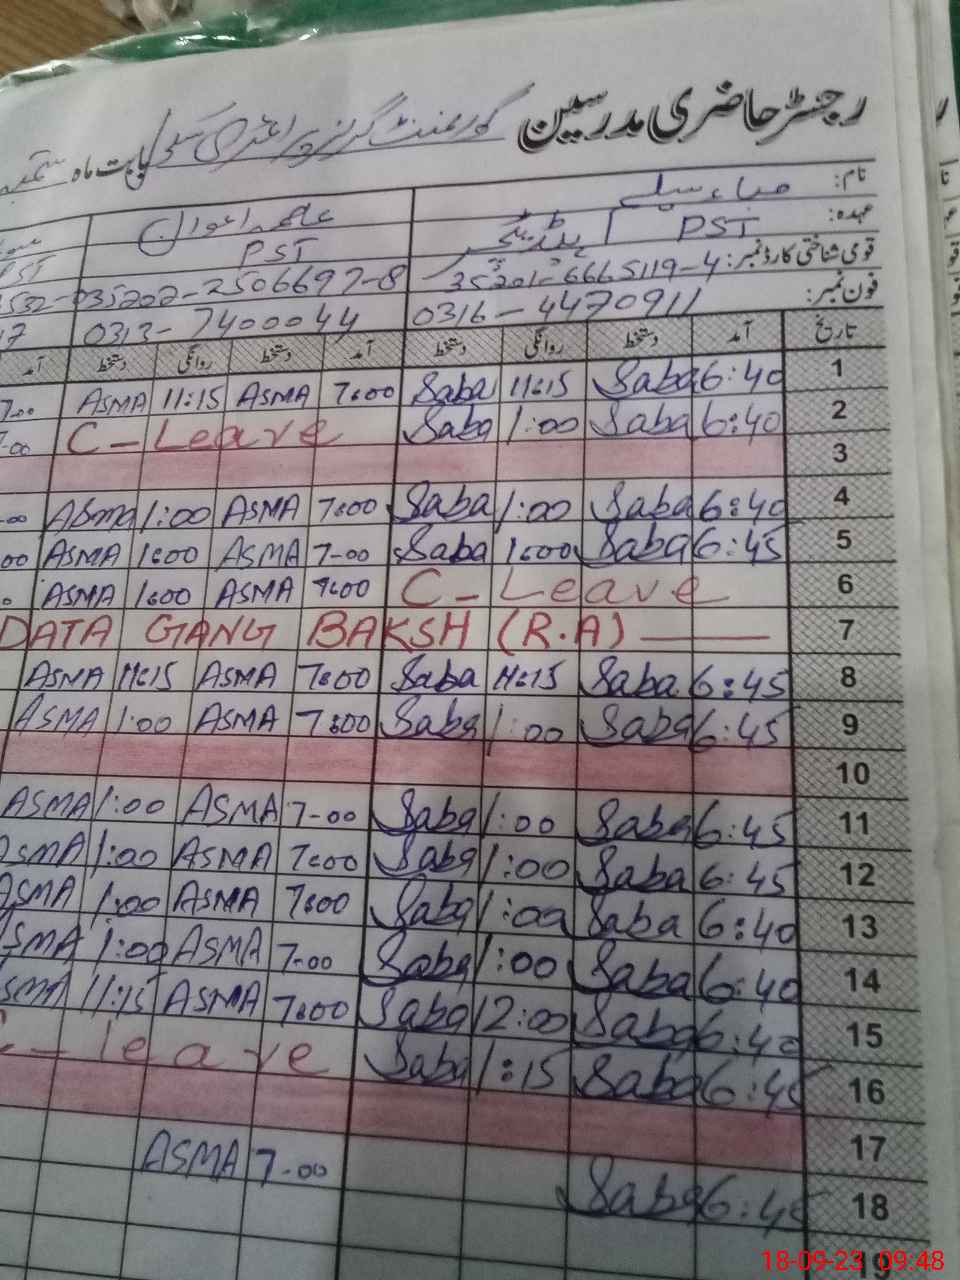 رجسٹر حاضری مدرسین گورنمنٹ گرلز پرائمری سکول بابت ماہ ستمبر
نام:
عہدہ: PST PST PST
قومی شناختی کارڈ نمبر: 35201-6665119-4 35202-2506697-8
فون نمبر: 0316-4470911 0313-7400044 17
تاریخ آمد دستخط روانگی دستخط آمد دستخط روانگی دستخط آمد
7-00 ASMA 11:15 ASMA 7:00 Saba 11:15 Saba 6:40 1
7-00 C-Leave Saba 1:00 Saba 6:40 2
3
-00 ASMA 1:00 ASMA 7:00 Saba 1:00 Saba 6:40 4
00 ASMA 1:00 ASMA 7-00 Saba 1:00 Saba 6:45 5
ASMA 1:00 ASMA 7:00 C-Leave 6
DATA GANG BAKSH (R.A) 7
ASMA 11:15 ASMA 7:00 Saba 11:15 Saba 6:45 8
ASMA 1:00 ASMA 7:00 Saba 1:00 Saba 6:45 9
10
ASMA 1:00 ASMA 7-00 Saba 1:00 Saba 6:45 11
ASMA 1:00 ASMA 7:00 Saba 1:00 Saba 6:45 12
ASMA 1:00 ASMA 7:00 Saba 1:00 Saba 6:40 13
SMA 1:00 ASMA 7-00 Saba 1:00 Saba 6:40 14
SMA 11:15 ASMA 7:00 Saba 12:00 Saba 6:40 15
C-leave Saba 1:15 Saba 6:45 16
17
ASMA 7-00 Saba 6:45 18
19
18-09-23 09:48